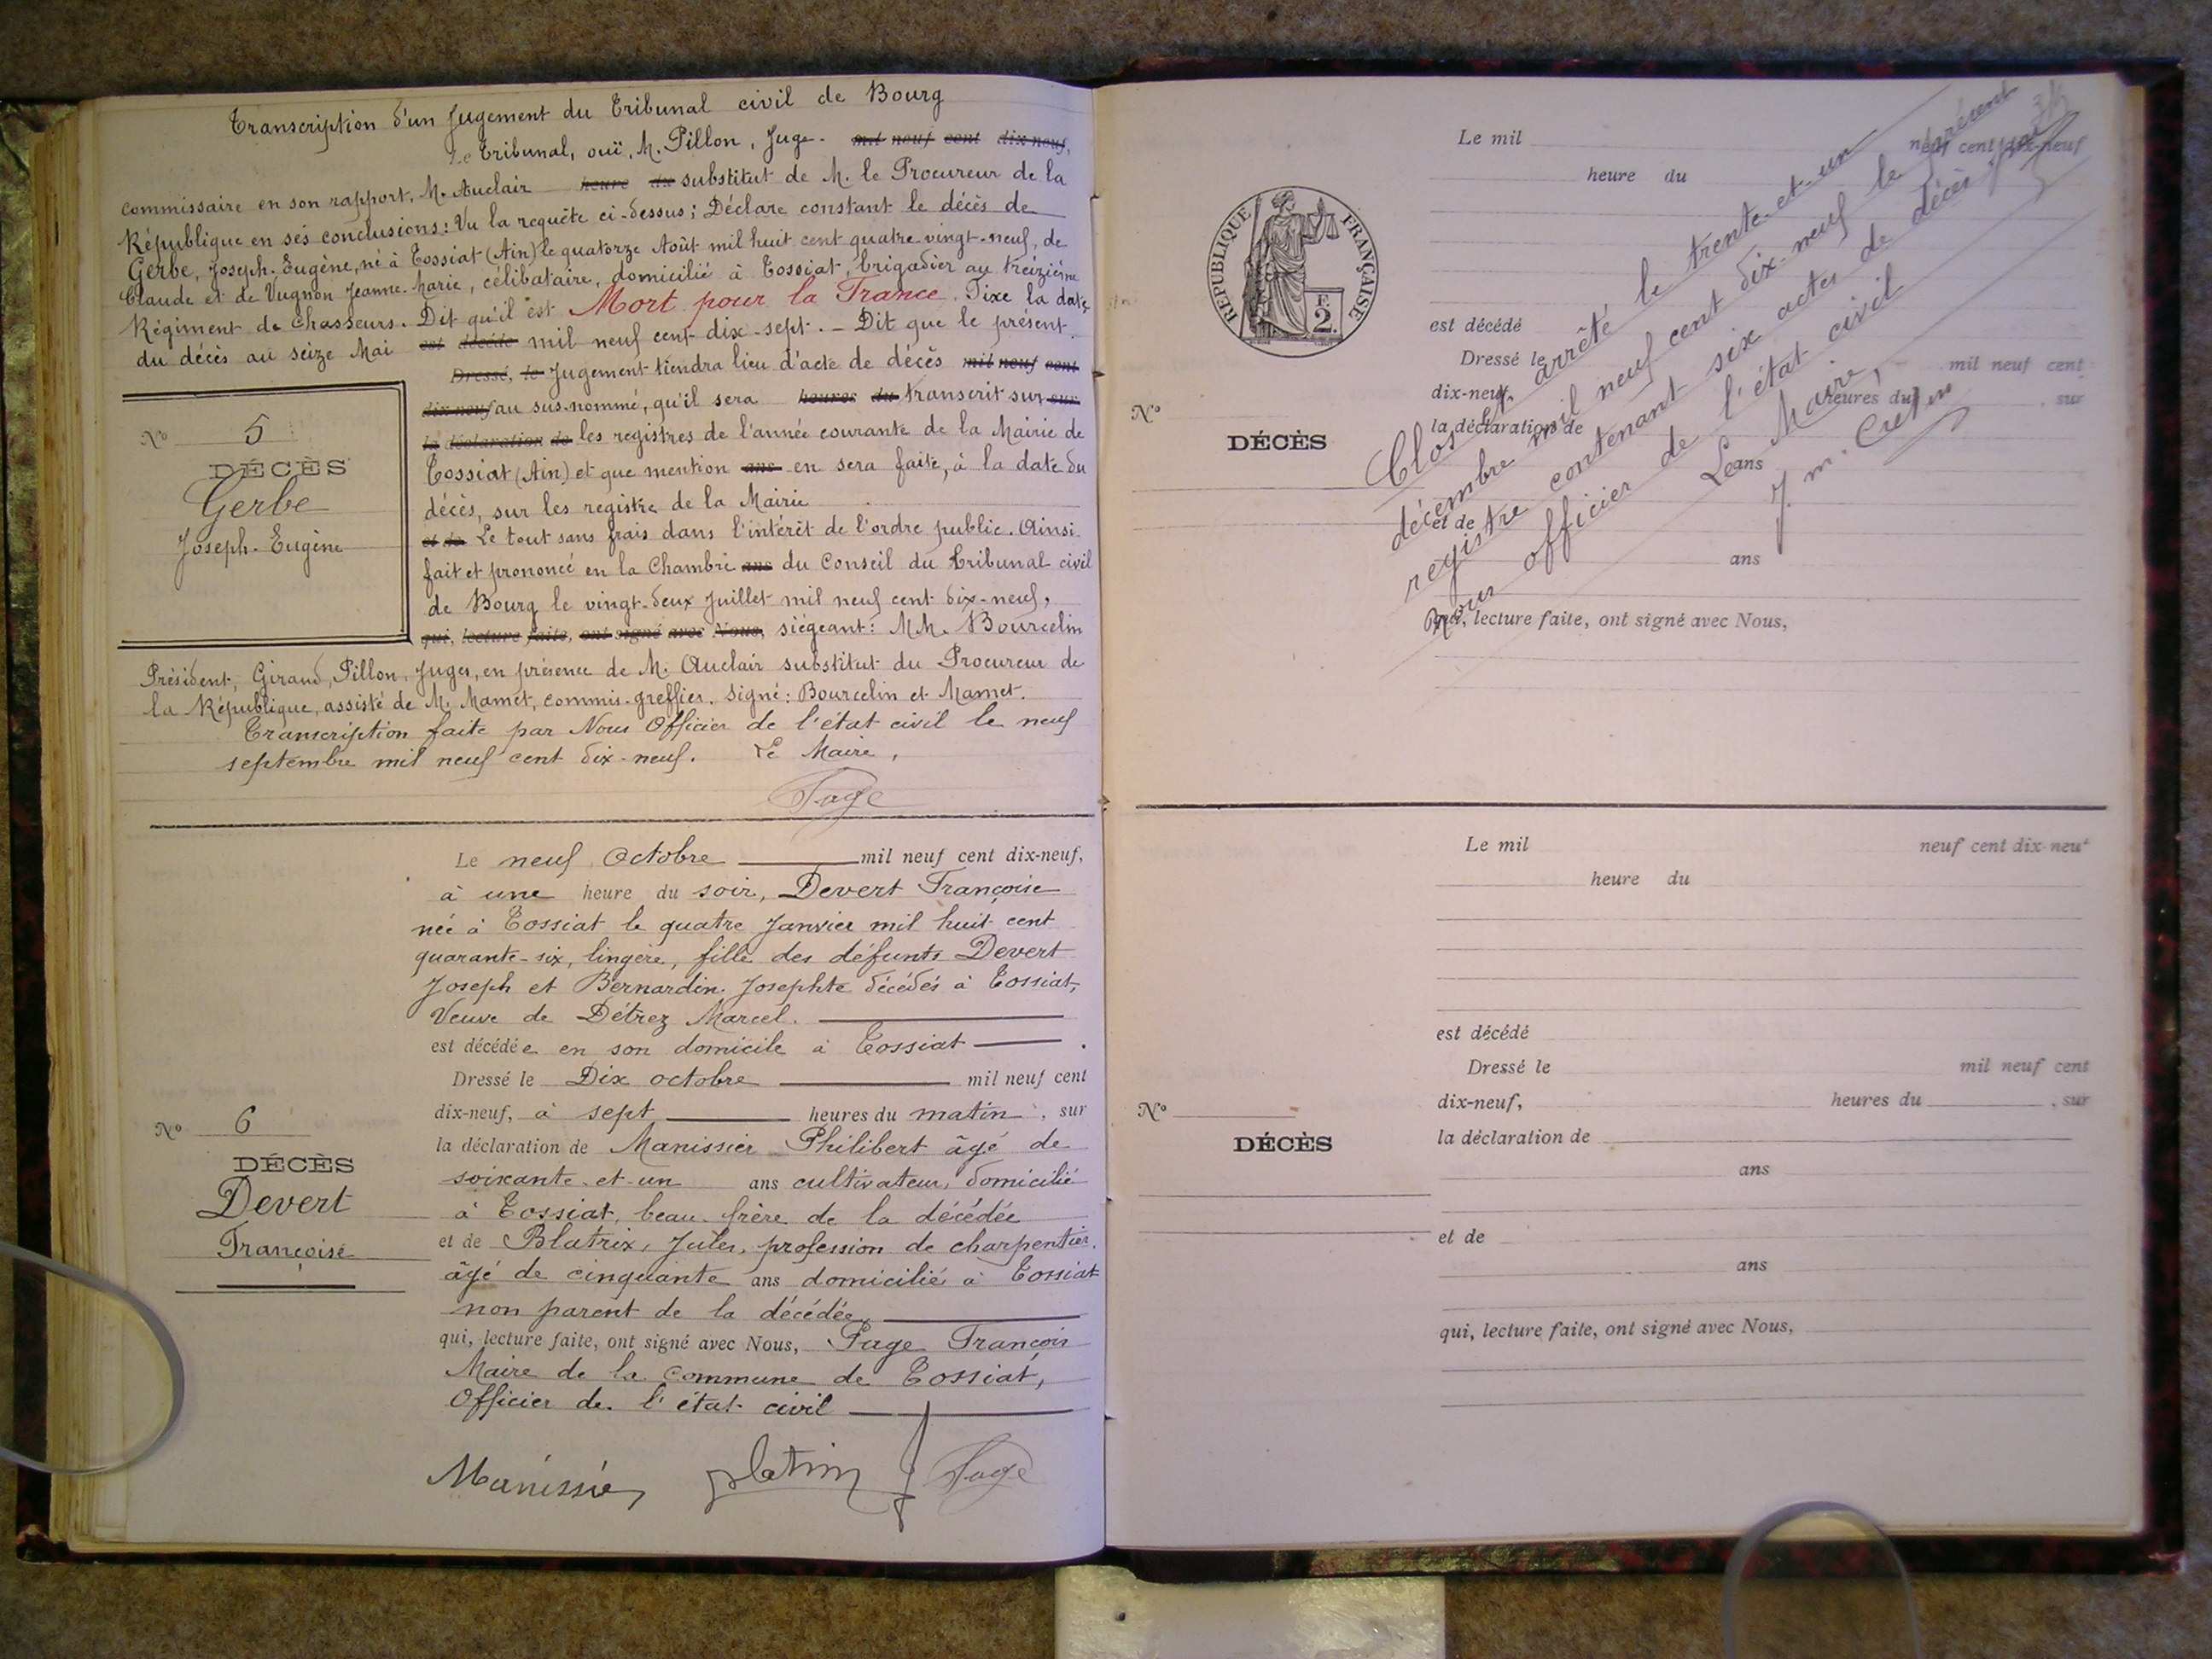 Transcription d'un Jugement du Tribunal civil de Bourg
Le Tribunal, ouï, M. Pillon, Juge- mil neuf cent dix-neuf,
commissaire en son rapport, M. Auclair heure du substitut de M. le Procureur de la
République en ses conclusions: Vu la requête ci-dessus; Déclare constant le décès de
Gerbe, Joseph-Eugène, né à Tossiat (Ain) le quatorze Août mil huit cent quatre-vingt-neuf, de
Claude et de Vugnon Jeanne-Marie, célibataire, domicilié à Tossiat, brigadier au treizième
Régiment de Chasseurs. Dit qu'il est Mort pour la France. Fixe la date
du décès au seize Mai est décédé mil neuf cent dix-sept. — Dit que le présent
Dressé, le Jugement tiendra lieu d'acte de décès mil neuf cent
dix-neuf au sus-nommé, qu'il sera heures du transcrit sur sur
la déclaration de les registres de l'année courante de la Mairie de
Tossiat (Ain) et que mention ans en sera faite, à la date du
décès, sur les registre de la Mairie
et de Le tout sans frais dans l'intérêt de l'ordre public. Ainsi
fait et prononcé en la Chambre ans du Conseil du Tribunal civil
de Bourg le vingt-deux Juillet mil neuf cent dix-neuf,
qui, lecture faite, ont signé avec Nous, siégeant: MM. Bourcelin
Président, Giraud, Pillon, Juges, en présence de M. Auclair substitut du Procureur de
la République, assisté de M. Mamet, commis-greffier. Signé: Bourcelin et Mamet.
Transcription faite par Nous Officier de l'état civil le neuf
septembre mil neuf cent dix-neuf. Le Maire,
Page
N° 5
DÉCÈS
Gerbe
Joseph-Eugène
Le neuf Octobre mil neuf cent dix-neuf,
à une heure du soir, Devert Françoise
née à Tossiat le quatre Janvier mil huit cent
quarante-six, lingère, fille des défunts Devert
Joseph et Bernardin Josephte décédés à Tossiat,
Veuve de Détrez Marcel.
est décédée en son domicile à Tossiat .
Dressé le Dix octobre mil neuf cent
dix-neuf, à sept heures du matin, sur
la déclaration de Manissier Philibert âgé de
soixante-et-un ans cultivateur, domicilié
à Tossiat, beau-frère de la décédée
et de Blatrix, Jules, profession de charpentier,
âgé de cinquante ans domicilié à Tossiat
non parent de la décédée,
qui, lecture faite, ont signé avec Nous, Page François
Maire de la commune de Tossiat,
Officier de l'état civil
N° 6
DÉCÈS
Devert
Françoise
Manissier Page
Le mil neuf cent dix-neuf
heure du
RÉPUBLIQUE FRANÇAISE
F.
2.
est décédé
Dressé le mil neuf cent
dix-neuf, heures du , sur
la déclaration de
ans
et de
ans
qui, lecture faite, ont signé avec Nous,
N°
DÉCÈS
Clos et arrêté le trente-et-un
décembre mil neuf cent dix-neuf le présent
registre contenant six actes de décès
nous officier de l'état civil
Le Maire,
Le mil neuf cent dix-neuf
heure du
est décédé
Dressé le mil neuf cent
dix-neuf, heures du , sur
la déclaration de
ans
et de
ans
qui, lecture faite, ont signé avec Nous,
N°
DÉCÈS